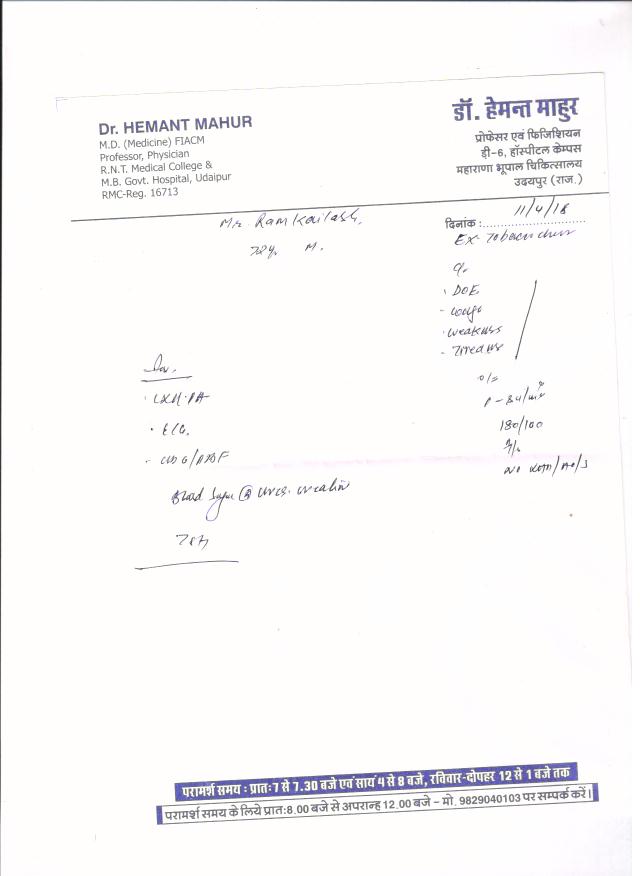 Dr. HEMANT MAHUR
M.D. (Medicine) FIACM
Professor, Physician
R.N.T. Medical College &
M.B. Govt. Hospital, Udaipur
RMC-Reg. 16713
डॉ. हेमन्त माहुर
प्रोफेसर एवं फिजिशियन
डी-6, हॉस्पीटल केम्पस
महाराणा भूपाल चिकित्सालय
उदयपुर (राज.)
दिनांक : 11/4/18
Mr. Ram Kailash,
72y. M.
Ex- Tobacco chew
c/o
· DOE
- cough
· weakness
- Tiredness
o/e
P - 84/min
180/100
Inv.
· CXR-PA
· ECG
Blood Sugar
परामर्श समय : प्रातः7 से 7.30 बजे एवं सायं 4 से 8 बजे, रविवार-दोपहर 12 से 1 बजे तक
परामर्श समय के लिये प्रात:8.00 बजे से अपरान्ह 12.00 बजे - मो. 9829040103 पर सम्पर्क करें।